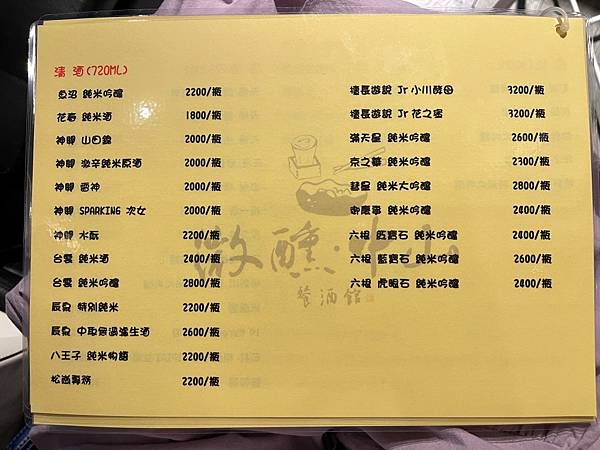 清 酒(720ML)
魚沼 純米吟釀 2200/瓶
花春 純米酒 1800/瓶
神開 山田錦 2000/瓶
神開 激辛純米原酒 2000/瓶
神開 雷神 2000/瓶
神開 SPARKING 次女 2000/瓶
神開 水酛 2200/瓶
台雲 純米酒 2400/瓶
台雲 純米吟釀 2800/瓶
辰泉 特別純米 2200/瓶
辰泉 中取無過濾生酒 2600/瓶
八王子 純米物語 2200/瓶
松崗專務 2200/瓶
樓長遊說 Jr 小川酵母 3200/瓶
樓長遊說 Jr 花之蜜 3200/瓶
滿天星 純米吟釀 2600/瓶
京之華 純米吟釀 2300/瓶
彗星 純米大吟釀 2800/瓶
御慶事 純米吟釀 2400/瓶
六根 紅寶石 純米吟釀 2400/瓶
六根 藍寶石 純米吟釀 2600/瓶
六根 虎眼石 純米吟釀 2400/瓶
微醺
餐酒館